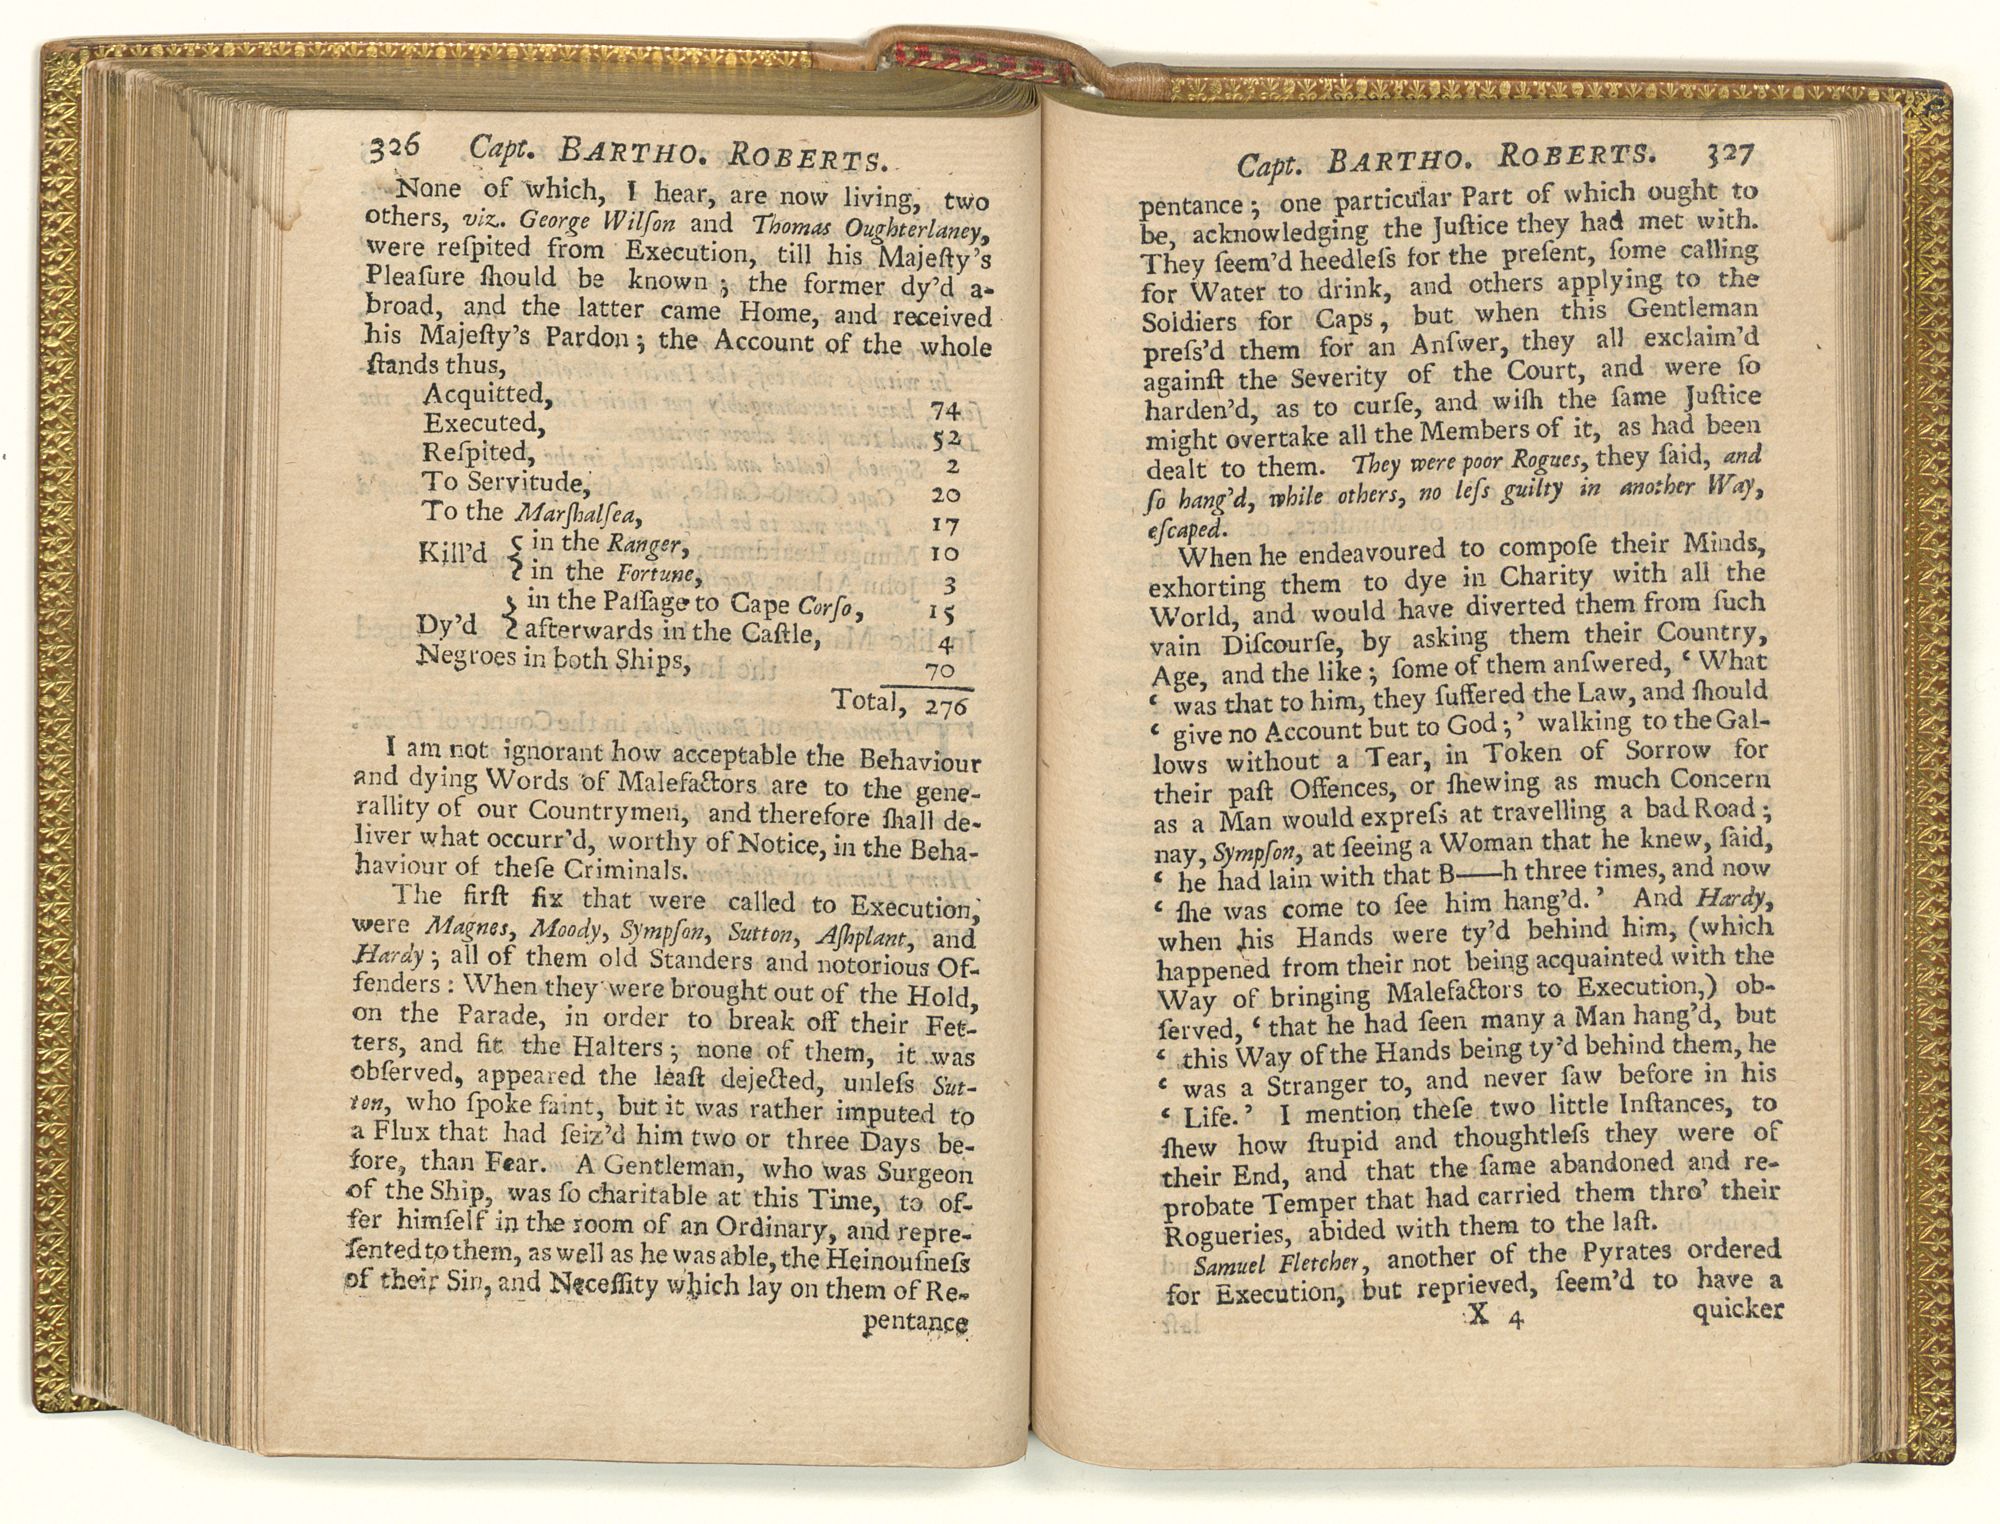 326 Capt. BARTHO. ROBERTS.
None of which, I hear, are now living, two
others, viz. George Wilſon and Thomas Oughterlaney,
were reſpited from Execution, till his Majeſty's
Pleaſure ſhould be known; the former dy'd a-
broad, and the latter came Home, and received
his Majeſty's Pardon; the Account of the whole
ſtands thus,
Acquitted, 74
Executed, 52
Reſpited, 2
To Servitude, 20
To the Marſhalſea, 17
Kill'd { in the Ranger, 10
in the Fortune, 3
Dy'd { in the Paſſage to Cape Corſo, 15
afterwards in the Caſtle, 4
Negroes in both Ships, 70
Total, 276
I am not ignorant how acceptable the Behaviour
and dying Words of Malefactors are to the gene-
rallity of our Countrymen, and therefore ſhall de-
liver what occurr'd, worthy of Notice, in the Beha-
haviour of theſe Criminals.
The firſt ſix that were called to Execution,
were Magnes, Moody, Sympſon, Sutton, Aſhplant, and
Hardy; all of them old Standers and notorious Of-
fenders: When they were brought out of the Hold,
on the Parade, in order to break off their Fet-
ters, and fit the Halters; none of them, it was
obſerved, appeared the leaſt dejected, unleſs Sut-
ton, who ſpoke faint, but it was rather imputed to
a Flux that had ſeiz'd him two or three Days be-
fore, than Fear. A Gentleman, who was Surgeon
of the Ship, was ſo charitable at this Time, to of-
fer himſelf in the room of an Ordinary, and repre-
ſented to them, as well as he was able, the Heinouſneſs
of their Sin, and Neceſſity which lay on them of Re-
pentance
Capt. BARTHO. ROBERTS. 327
pentance; one particular Part of which ought to
be, acknowledging the Juſtice they had met with.
They ſeem'd heedleſs for the preſent, ſome calling
for Water to drink, and others applying to the
Soldiers for Caps, but when this Gentleman
preſs'd them for an Anſwer, they all exclaim'd
againſt the Severity of the Court, and were ſo
harden'd, as to curſe, and wiſh the ſame Juſtice
might overtake all the Members of it, as had been
dealt to them. They were poor Rogues, they ſaid, and
ſo hang'd, while others, no leſs guilty in another Way,
eſcaped.
When he endeavoured to compoſe their Minds,
exhorting them to dye in Charity with all the
World, and would have diverted them from ſuch
vain Diſcourſe, by asking them their Country,
Age, and the like; ſome of them anſwered, ‘ What
‘ was that to him, they ſuffered the Law, and ſhould
‘ give no Account but to God;’ walking to the Gal-
lows without a Tear, in Token of Sorrow for
their paſt Offences, or ſhewing as much Concern
as a Man would expreſs at travelling a bad Road;
nay, Sympſon, at ſeeing a Woman that he knew, ſaid,
‘ he had lain with that B——h three times, and now
‘ ſhe was come to ſee him hang'd.’ And Hardy,
when his Hands were ty'd behind him, (which
happened from their not being acquainted with the
Way of bringing Malefactors to Execution,) ob-
ſerved, ‘ that he had ſeen many a Man hang'd, but
‘ this Way of the Hands being ty'd behind them, he
‘ was a Stranger to, and never ſaw before in his
‘ Life.’ I mention theſe two little Inſtances, to
ſhew how ſtupid and thoughtleſs they were of
their End, and that the ſame abandoned and re-
probate Temper that had carried them thro' their
Rogueries, abided with them to the laſt.
Samuel Fletcher, another of the Pyrates ordered
for Execution, but reprieved, ſeem'd to have a
X 4 quicker